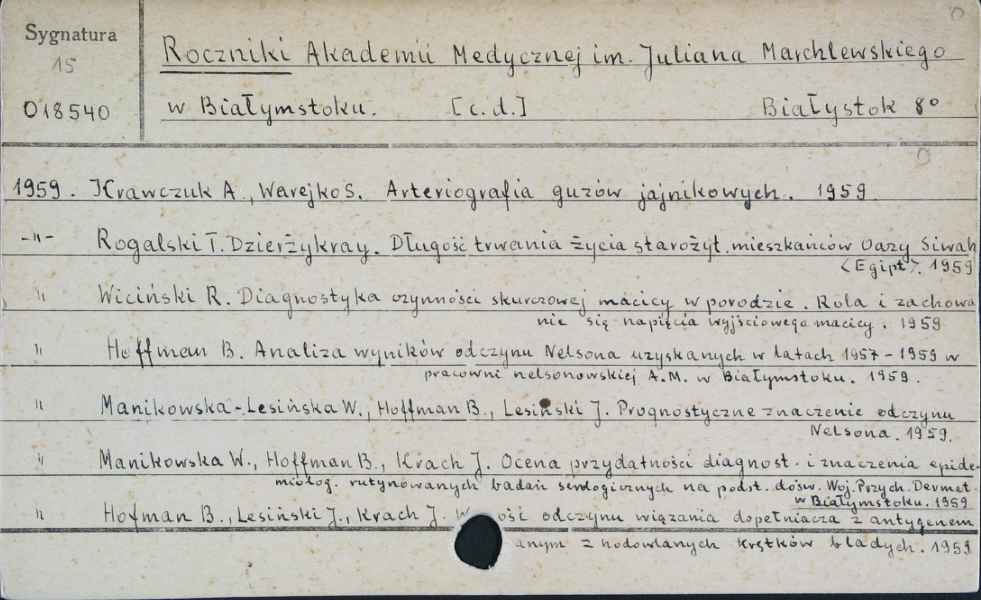 Sygnatura
15
018540
Roczniki Akademii Medycznej im. Juliana Marchlewskiego
w Białymstoku. [c.d.] Białystok 8°
1959. Krawczuk A., Warejko S. Arteriografia guzów jajnikowych. 1959
-"- Rogalski T. Dzierżykray. Długość trwania życia starożyt. mieszkańców Oazy Siwah
(Egipt). 1959
" Wiciński R. Diagnostyka czynności skurczowej macicy w porodzie. Rola i zachowa
nie się napięcia wyjściowego macicy. 1959
" Hoffman B. Analiza wyników odczynu Nelsona uzyskanych w latach 1957-1959 w
pracowni nelsonowskiej A.M. w Białymstoku. 1959.
" Manikowska-Lesińska W., Hoffman B., Lesiński J. Prognostyczne znaczenie odczynu
Nelsona. 1959.
" Manikowska W., Hoffman B., Krach J. Ocena przydatności diagnost. i znaczenia epide-
miolog. rutynowanych badań serologicznych na podst. dośw. Woj. Przych. Dermat.
w Białymstoku. 1959
" Hofman B., Lesiński J., Krach J. odczynu wiązania dopełniacza z antygenem
anym z hodowlanych krętków bladych. 1959